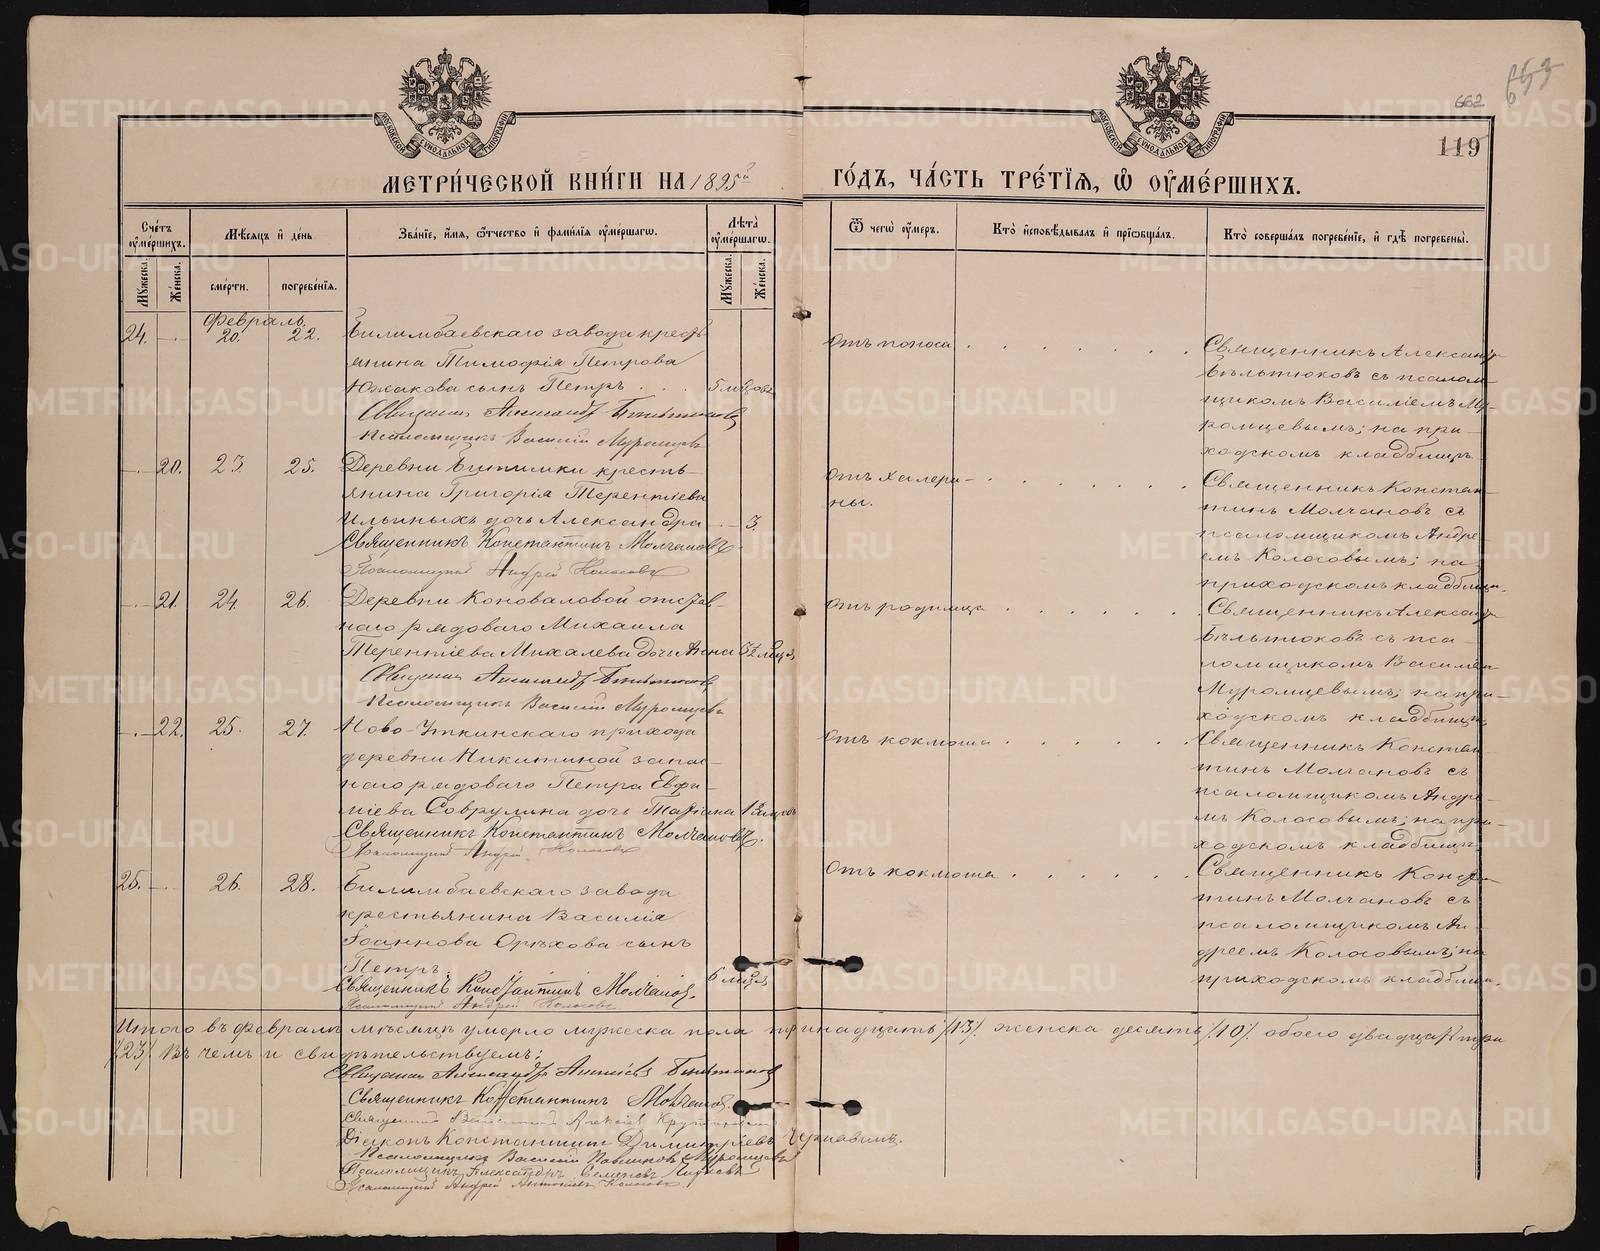 662
119
МЕТРИ́ЧЕСКОЙ КНИ́ГИ НА 1895й ГО́ДЪ, ЧА́СТЬ ТРЕ́ТІѦ, Ѡ ОУМЕ́РШИХЪ.
Сче́тъ оуме́ршихъ.
Мѣ́сяцъ и де́нь
Зва́ніе, и́мя, о́тчество и фами́лія оуме́ршагѡ.
Лѣта̀ оуме́ршагѡ.
Ѿ чегѡ̀ оу́меръ.
Кто̀ исповѣ́дывалъ и пріѡбща́лъ.
Кто̀ соверша́лъ погребе́ніе, и гдѣ̀ погребены̀.
Му́жеска.
Же́нска.
сме́рти.
погребе́нія.
Му́жеска.
Же́нска.
Февраль.
24. — 20. 22.
Билимбаевскаго завода кресть-
янина Тимофія Петрова
Южакова сынъ Петръ . . .
Священникъ Александръ
Псаломщикъ Василій Муромцевъ
отъ поноса
Священникъ Александръ
съ псалом-
щикомъ Василіемъ Му-
ромцевымъ; на при-
ходскомъ кладбищѣ.
— 20. 23. 25.
Деревни Битимки кресть-
янина Григорія Терентіева
Ильиныхъ дочь Александра — 3.
Священникъ Константинъ Молчановъ
Псаломщикъ Андрей Колосовъ
Священникъ Констан-
тинъ Молчановъ съ
псаломщикомъ Андре-
емъ Колосовымъ; на
приходскомъ кладбищѣ.
— 21. 24. 26.
Деревни Коноваловой отстав-
наго рядоваго Михаила
Терентіева Михалева дочь Анна
Священникъ Александръ
Псаломщикъ Василій Муромцевъ
отъ родимца
Священникъ Александръ
съ пса-
ломщикомъ Василіемъ
Муромцевымъ; на при-
ходскомъ кладбищѣ.
— 22. 25. 27.
Ново-Уткинскаго прихода
деревни Никитиной запас-
наго рядоваго Петра Евфи-
міева дочь
Священникъ Константинъ Молчановъ.
Псаломщикъ Андрей Колосовъ
отъ коклюша
Священникъ Констан-
тинъ Молчановъ съ
псаломщикомъ Андре-
емъ Колосовымъ; на при-
ходскомъ кладбищѣ.
25. — 26. 28.
Билимбаевскаго завода
крестьянина Василія
Іоаннова Орѣхова сынъ
Петръ.
Священникъ Константинъ Молчановъ.
Псаломщикъ Андрей Колосовъ
отъ коклюша
Священникъ Констан-
тинъ Молчановъ съ
псаломщикомъ Ан-
дреемъ Колосовымъ; на
приходскомъ кладбищѣ.
Итого въ февралѣ мѣсяцѣ умерло мужеска пола тринадцать /13/. женска десять /10/. обоего двадцать три
/23/. Въ чемъ и свидѣтельствуемъ:
Священникъ Александръ
Священникъ Константинъ Молчановъ.
Священникъ
Діаконъ Константинъ Димитріевъ
Псаломщикъ Василій Муромцевъ
Псаломщикъ Александръ Семеновъ
Псаломщикъ Андрей Колосовъ.
METRIKI.GASO-URAL.RU